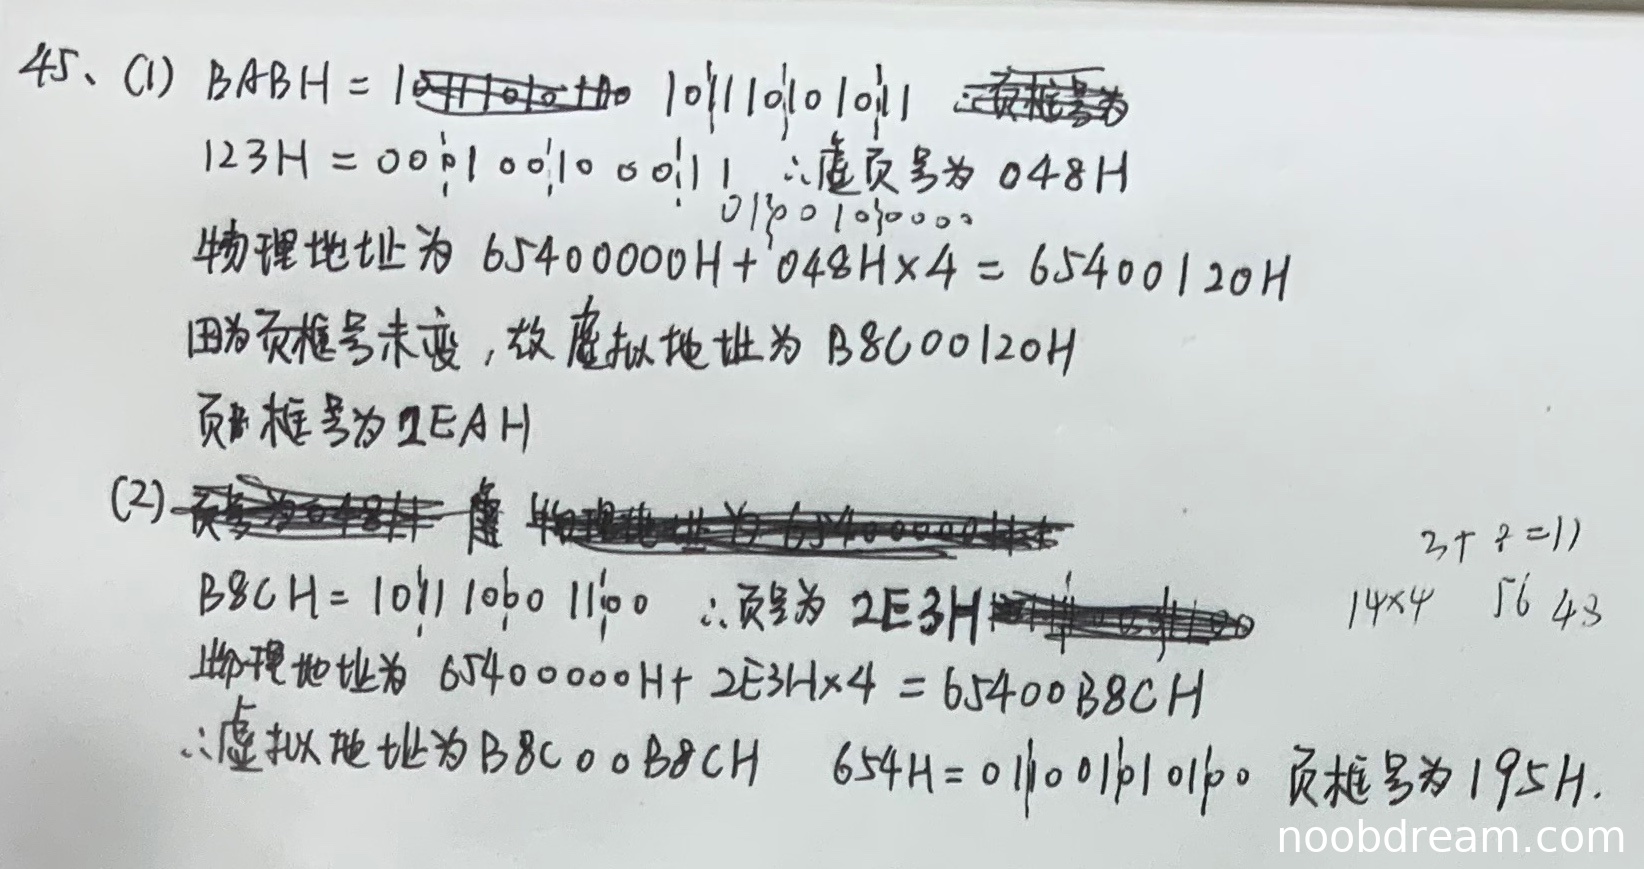 45、(1) BABH = 1 101110101011
123H = 000100100011 ∴虚页号为 048H
0100100000
物理地址为 65400000H + 048H×4 = 65400120H
因为页框号未变，故虚拟地址为 B8C00120H
页框号为2EAH
(2) 虚
B8CH = 101110001100 ∴页号为 2E3H
3+8=11
14×4 56 43
物理地址为 65400000H + 2E3H×4 = 65400B8CH
∴虚拟地址为B8C00B8CH 654H = 011001010100 页框号为195H.
noobdream.com